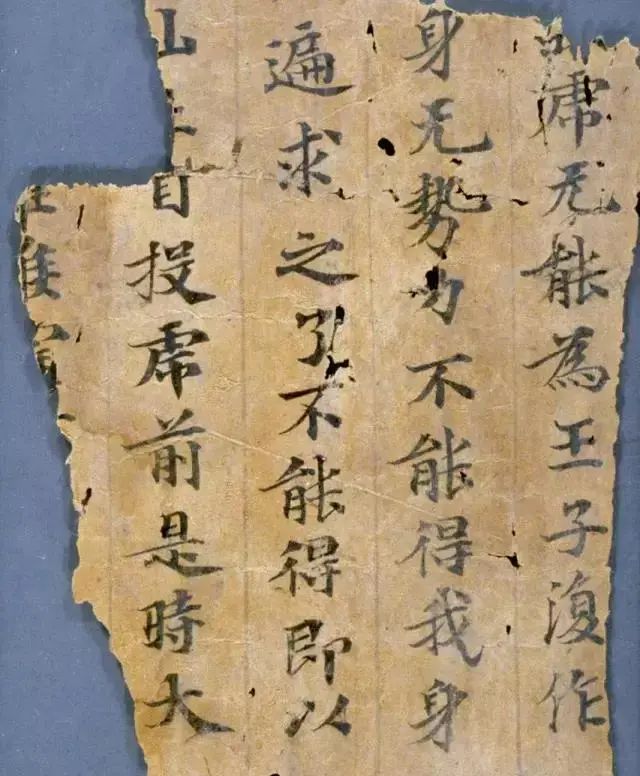 虎无能為王子復作
身无勢力不能得我身
遍求之了不能得即以
山上自投虎前是時大